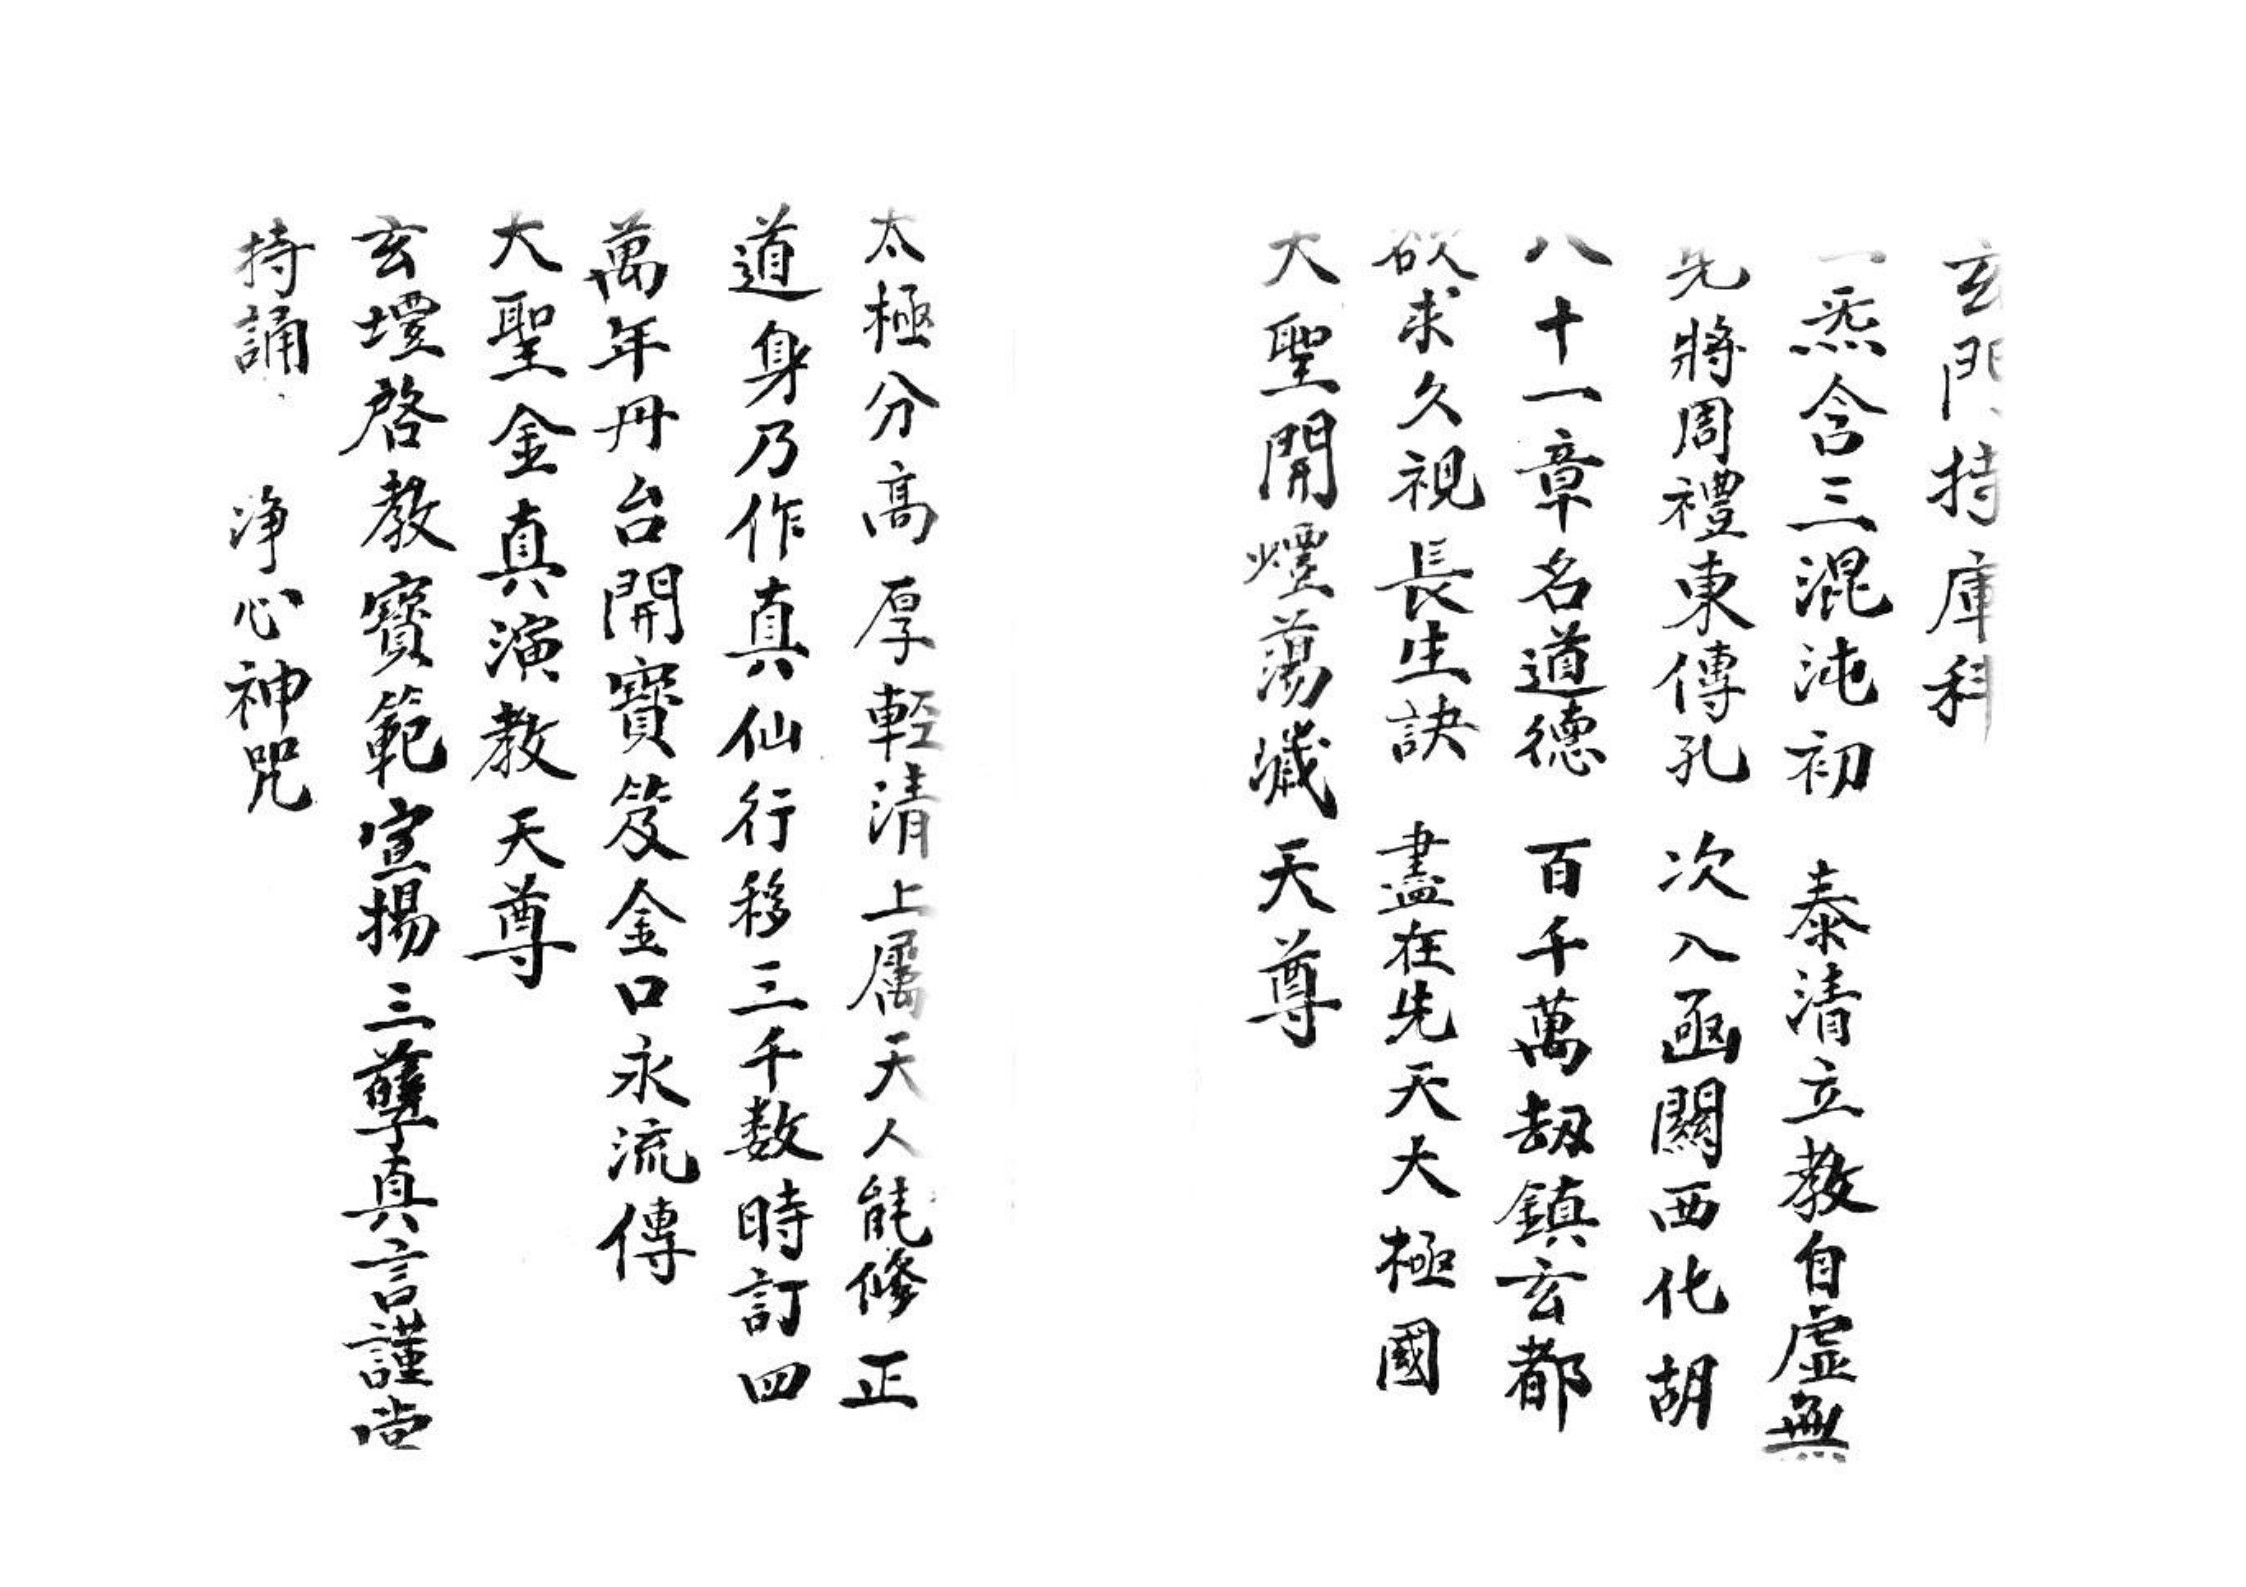 玄門持庫科
一炁含三混沌初　泰清立教自虛無
先將周禮東傳孔　次入函關西化胡
八十一章名道德　百千萬劫鎮玄都
欲求久視長生訣　盡在先天大極國
大聖開壇蕩穢天尊
太極分高厚輕清上屬天人能修正
道身乃作真仙行移三千数時訂四
萬年丹台開寶笈金口永流傳
大聖金真演教天尊
玄壇啓教寳範宣揚三孽真言謹當
持誦　淨心神咒